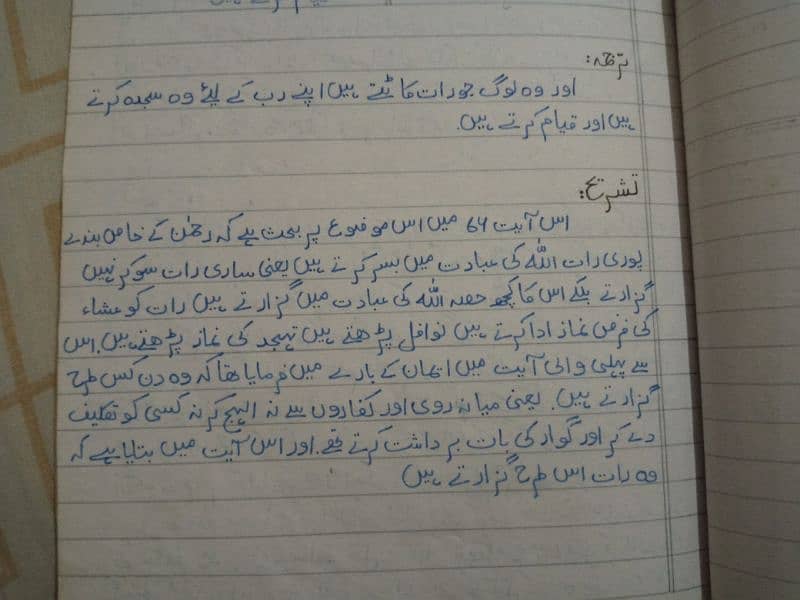 ترجمہ:
اور وہ لوگ جو رات کاٹتے ہیں اپنے رب کے لیئے وہ سجدہ کرتے
ہیں اور قیام کرتے ہیں.
تشریح:
اس آیت 64 میں اس موضوع پر بحث ہے کہ رحمٰن کے خاص بندے
پوری رات اللہ کی عبادت میں بسر کرتے ہیں یعنی ساری رات سو کر نہیں
گزارتے بلکے اس کا کچھ حصہ اللہ کی عبادت میں گزارتے ہیں رات کو عشاء
کی فرض نماز ادا کرتے ہیں نوافل پڑھتے ہیں تہجد کی نماز پڑھتے ہیں. اس
سے پہلی والی آیت میں انھان کے بارے میں فرمایا تھا کہ وہ دن کس طرح
گزارتے ہیں. یعنی میانہ روی اور کفاروں سے نہ الہج کر نہ کسی کو تکلیف
دے کر اور گوار کی بات برداشت کرتے تھے. اور اس آیت میں بتلایا ہے کہ
وہ رات اس طرح گزارتے ہیں